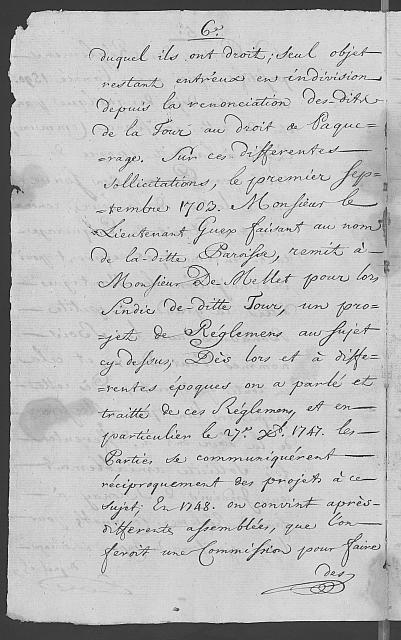 6.e
duquel ils ont droit; seul objet
restant entr'eux en indivision
depuis la renonciation des-dits
de la Tour au droit de Paque=
=rage. Sur ces differentes
sollicitations, le premier Sep-
=tembre 1702. Monsieur le
Lieutenant Guex faisant au nom
de la-ditte Paroisse, remit à
Monsieur De Mellet pour lors
Sindic de-ditte Tour, un pro-
=jet de Réglemens au sujet
cy-dessus; Dès lors et à diffe-
=rentes époques on a parlé et
traitté de ces Réglemens, et en
particulier le 27.e Xb. 1747. les
Parties se communiquérent
réciproquement des projets à ce
sujet; En 1748. on convint après
differentes assemblées, que l'on
feroit une Commission pour faire
des